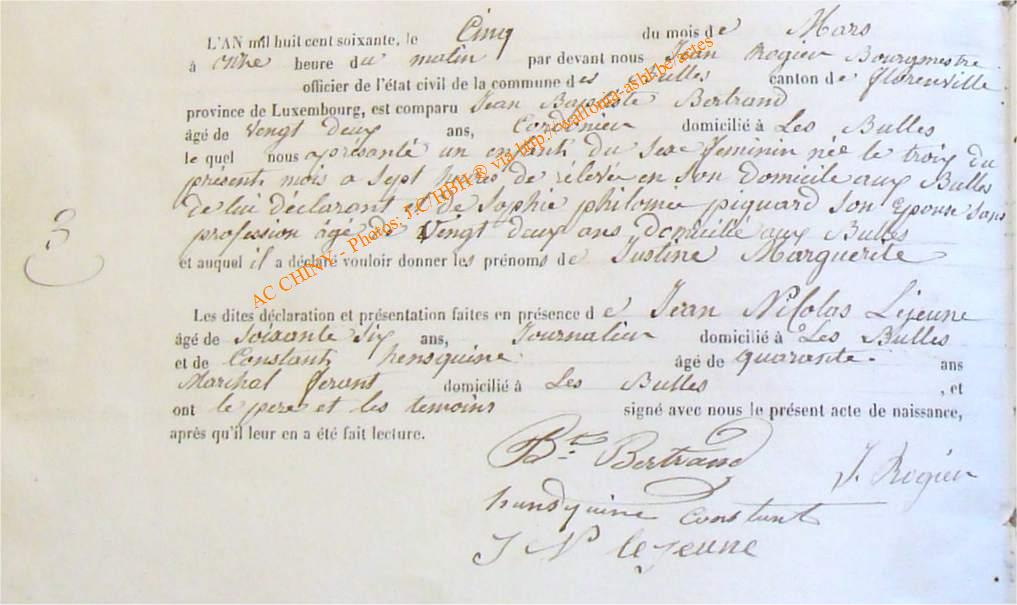 L'AN mil huit cent soixante, le Cinq du mois de Mars
à onze heure du matin par devant nous Jean Rogier Bourgmestre
officier de l'état civil de la commune des Bulles canton de florenville
province de Luxembourg, est comparu Jean Baptiste Bertrand
âgé de Vengt deux ans, Cordonier domicilié à Les Bulles
le quel nous apresanté un enfant du sexe feminin née le troix du
présent mois a sept heures de relevée en son domicile aux Bulles
de lui declarant et de Sophie philomie piquard son Epouse sans
profession agé de Vengt deux ans domicilié aux Bulles
et auquel il a déclaré vouloir donner les prénoms de Justine Marguerite
3
Les dites déclaration et présentation faites en présence de Jean Nicolas Lejeune
âgé de Soixante Six ans, Journalier domicilié à Les Bulles
et de Constant hensquine âgé de quarante ans
Marchal ferant domicilié à Les Bulles , et
ont le pere et les temoins signé avec nous le présent acte de naissance,
après qu'il leur en a été fait lecture.
Bte Bertrand
J. Rogier
hansquine constant
J N lejeune
AC CHINY - Photos: J.C/HBH ® via http://wallonia-asbl.be/actes